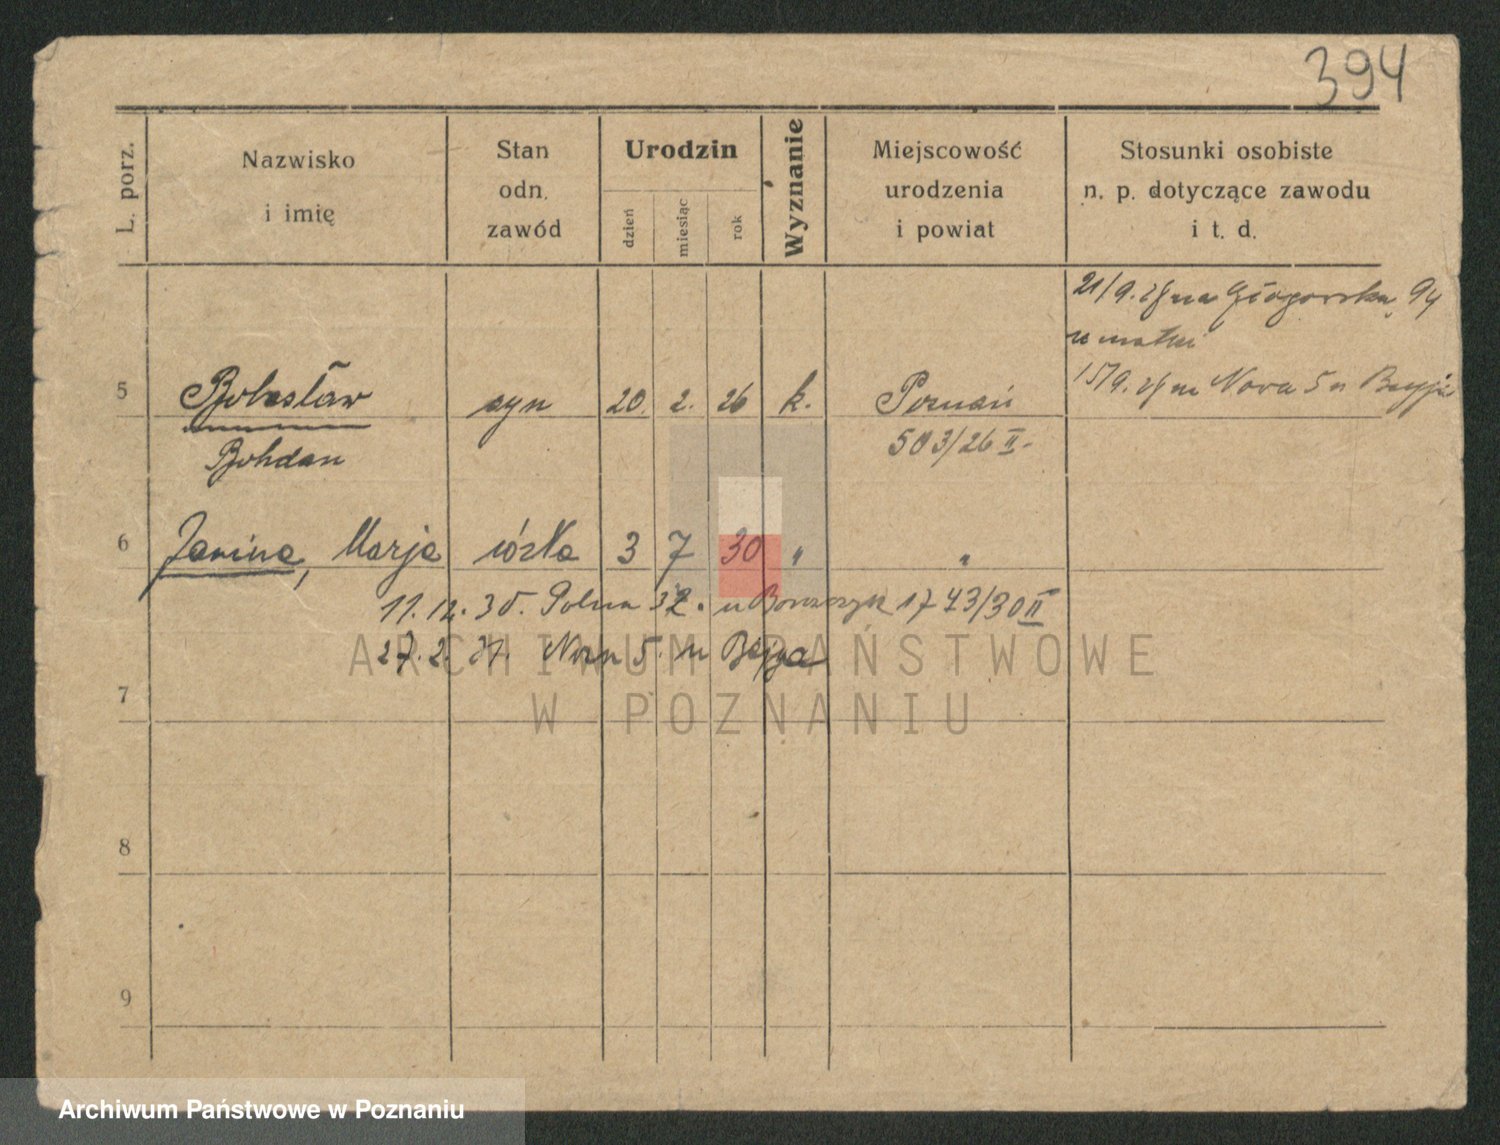 394
L. porz.
Nazwisko
i imię
Stan
odn.
zawód
Urodzin
dzień
miesiąc
rok
Wyznanie
Miejscowość
urodzenia
i powiat
Stosunki osobiste
n. p. dotyczące zawodu
i t. d.
21/9. na Głogorska, 94
u matki
5 Bolesław syn 20. 2. 26 k. Poznań
15/9. Nova 5
Bohdan
503/26 II
6 Janina, Marja córka 3 7 30 " "
11.12.30. Polna 32. u 1743/30 II
27.2. 5. u
7
8
9
ARCHIWUM PAŃSTWOWE
W POZNANIU
Archiwum Państwowe w Poznaniu